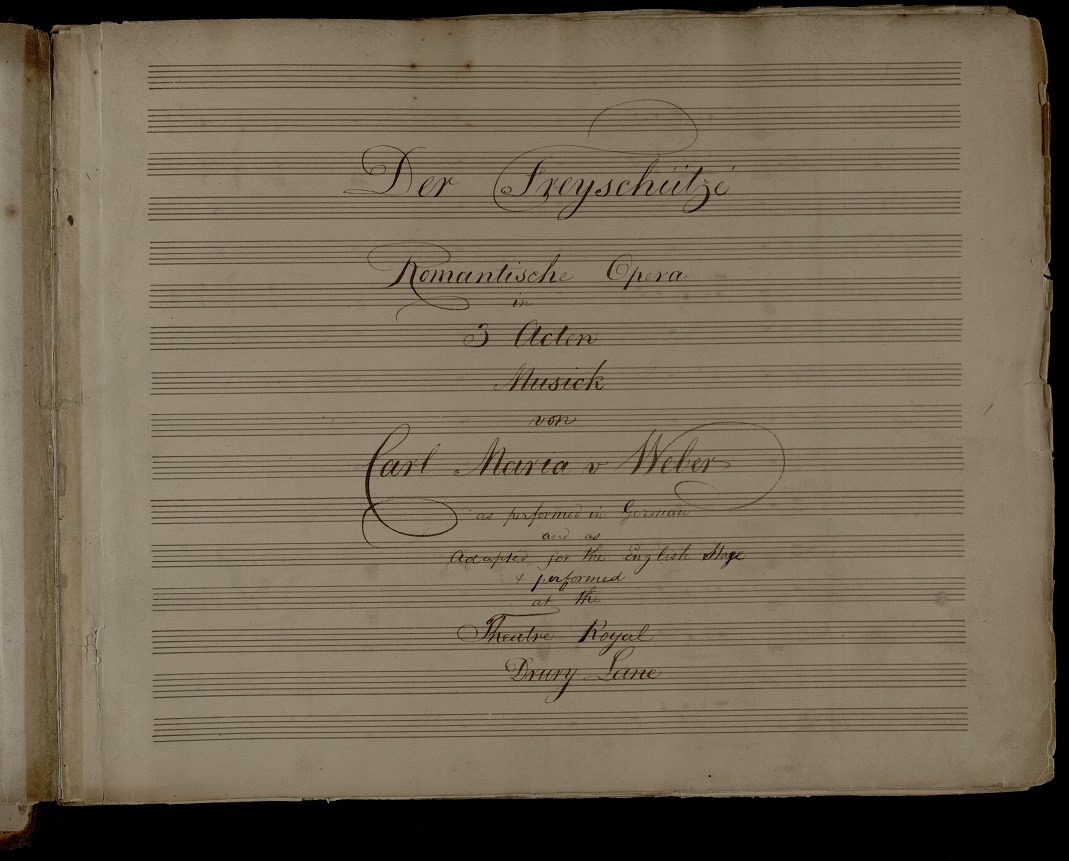 Der Freyschütze
Romantische Opera
in
3 Acten
Musick
von
Carl Maria v Weber
as performed in German
and as
Adapted for the English Stage
& performed
at the
Theatre Royal
Drury Lane